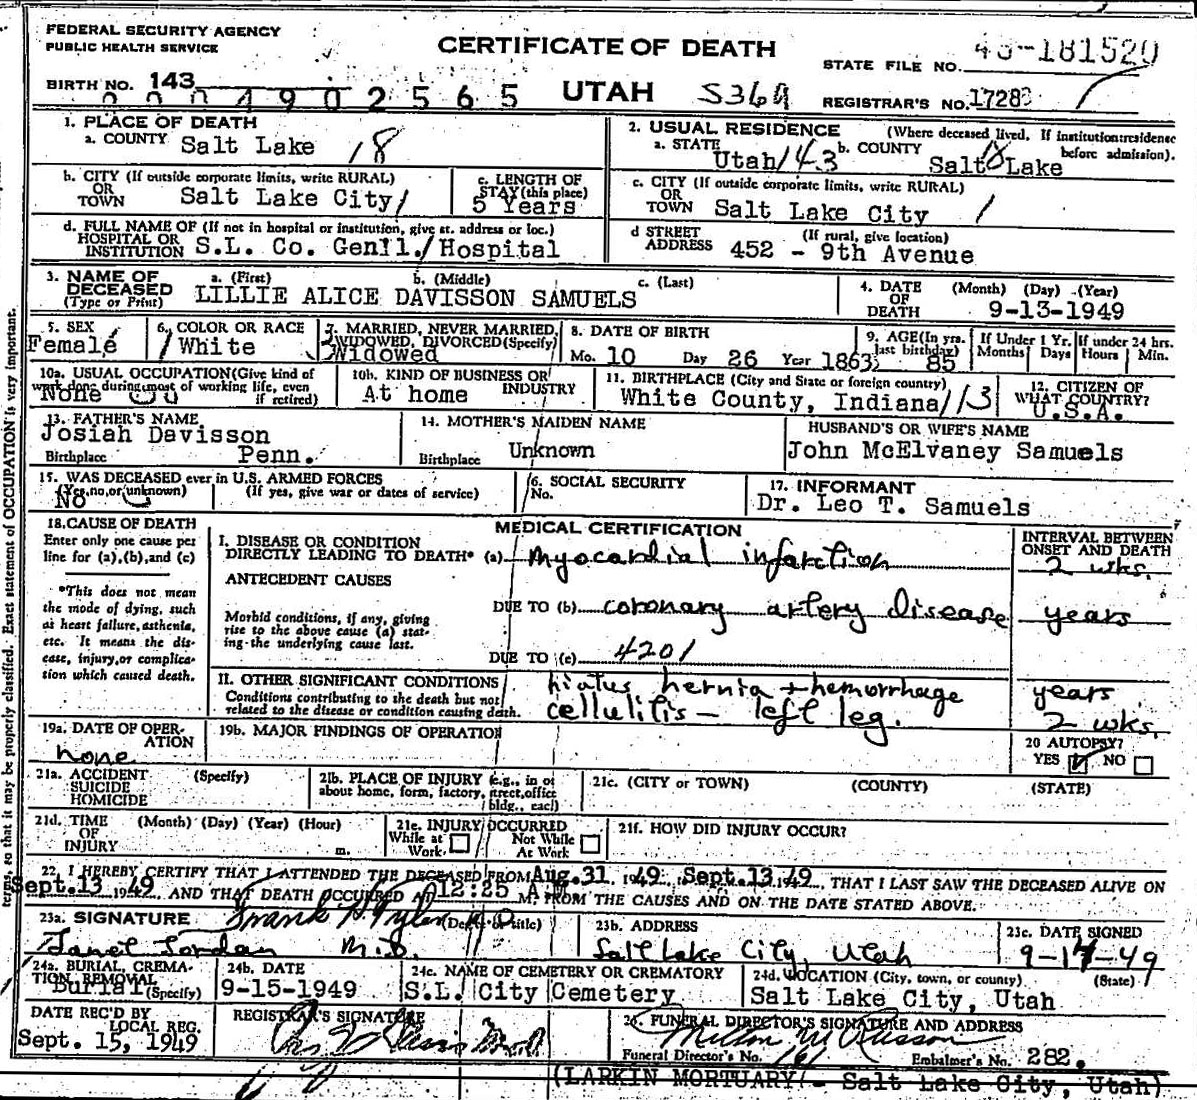 FEDERAL SECURITY AGENCY
PUBLIC HEALTH SERVICE
CERTIFICATE OF DEATH
UTAH S369
STATE FILE NO. 181520
BIRTH NO. 143
0004902565
REGISTRAR'S NO. 1728
1. PLACE OF DEATH
a. COUNTY Salt Lake 18
2. USUAL RESIDENCE (Where deceased lived. If institution: residence before admission).
a. STATE Utah 143 b. COUNTY Salt Lake 18
b. CITY (If outside corporate limits, write RURAL)
OR TOWN Salt Lake City 1
c. LENGTH OF STAY (this place)
5 Years
c. CITY (If outside corporate limits, write RURAL)
OR TOWN Salt Lake City 1
d. FULL NAME OF (If not in hospital or institution, give st. address or loc.)
HOSPITAL OR INSTITUTION S.L. Co. Gen'l. Hospital
d STREET ADDRESS (If rural, give location)
452 - 9th Avenue
3. NAME OF DECEASED (Type or Print)
a. (First) b. (Middle) c. (Last)
LILLIE ALICE DAVISSON SAMUELS
4. DATE OF DEATH (Month) (Day) (Year)
9-13-1949
5. SEX
Female
6. COLOR OR RACE
White
7. MARRIED, NEVER MARRIED, WIDOWED, DIVORCED (Specify)
Widowed
8. DATE OF BIRTH
Mo. 10 Day 26 Year 1863
9. AGE (In yrs. last birthday) 85
If Under 1 Yr. Months Days
If under 24 hrs. Hours Min.
10a. USUAL OCCUPATION (Give kind of work done during most of working life, even if retired)
None
10b. KIND OF BUSINESS OR INDUSTRY
At home
11. BIRTHPLACE (City and State or foreign country)
White County, Indiana 113
12. CITIZEN OF WHAT COUNTRY?
U.S.A.
13. FATHER'S NAME
Josiah Davisson
Birthplace Penn.
14. MOTHER'S MAIDEN NAME
Unknown
Birthplace
HUSBAND'S OR WIFE'S NAME
John McElvaney Samuels
15. WAS DECEASED ever in U.S. ARMED FORCES
(Yes, no, or unknown) (If yes, give war or dates of service)
No
16. SOCIAL SECURITY
No.
17. INFORMANT
Dr. Leo T. Samuels
18. CAUSE OF DEATH
Enter only one cause per line for (a), (b), and (c)
*This does not mean the mode of dying, such as heart failure, asthenia, etc. It means the disease, injury, or complication which caused death.
MEDICAL CERTIFICATION
INTERVAL BETWEEN ONSET AND DEATH
I. DISEASE OR CONDITION
DIRECTLY LEADING TO DEATH* (a) myocardial infarction 2 wks.
ANTECEDENT CAUSES
Morbid conditions, if any, giving rise to the above cause (a) stating the underlying cause last.
DUE TO (b) coronary artery disease years
DUE TO (c) 4201
II. OTHER SIGNIFICANT CONDITIONS
Conditions contributing to the death but not related to the disease or condition causing death.
hiatus hernia + hemorrhage years
cellulitis - left leg. 2 wks.
19a. DATE OF OPERATION
none
19b. MAJOR FINDINGS OF OPERATION
20 AUTOPSY?
YES NO
21a. ACCIDENT SUICIDE HOMICIDE (Specify)
21b. PLACE OF INJURY (e.g., in or about home, form, factory, street, office bldg., eac)
21c. (CITY OR TOWN) (COUNTY) (STATE)
21d. TIME OF INJURY (Month) (Day) (Year) (Hour) m.
21e. INJURY OCCURRED
While at Work Not While At Work
21f. HOW DID INJURY OCCUR?
22. I HEREBY CERTIFY THAT I ATTENDED THE DECEASED FROM Aug. 31 1949, Sept. 13 1949, THAT I LAST SAW THE DECEASED ALIVE ON
Sept. 13 1949 AND THAT DEATH OCCURED AT 12:25 A M, FROM THE CAUSES AND ON THE DATE STATED ABOVE.
23a. SIGNATURE (Degree or title)
Frank H Tyler M D
Janet Jordan M.D.
23b. ADDRESS
Salt Lake City, Utah
23c. DATE SIGNED
9-14-49
24a. BURIAL, CREMATION REMOVAL (Specify)
Burial
24b. DATE
9-15-1949
24c. NAME OF CEMETERY OR CREMATORY
S.L. City Cemetery
24d. LOCATION (City, town, or county) (State)
Salt Lake City, Utah
DATE REC'D BY LOCAL REG.
Sept. 15, 1949
REGISTRAR'S SIGNATURE
FUNERAL DIRECTOR'S SIGNATURE AND ADDRESS
Funeral Director's No. 161 Embalmer's No. 282.
(LARKIN MORTUARY - Salt Lake City, Utah)
terms, so that it may be properly classified. Exact statement of OCCUPATION is very important.